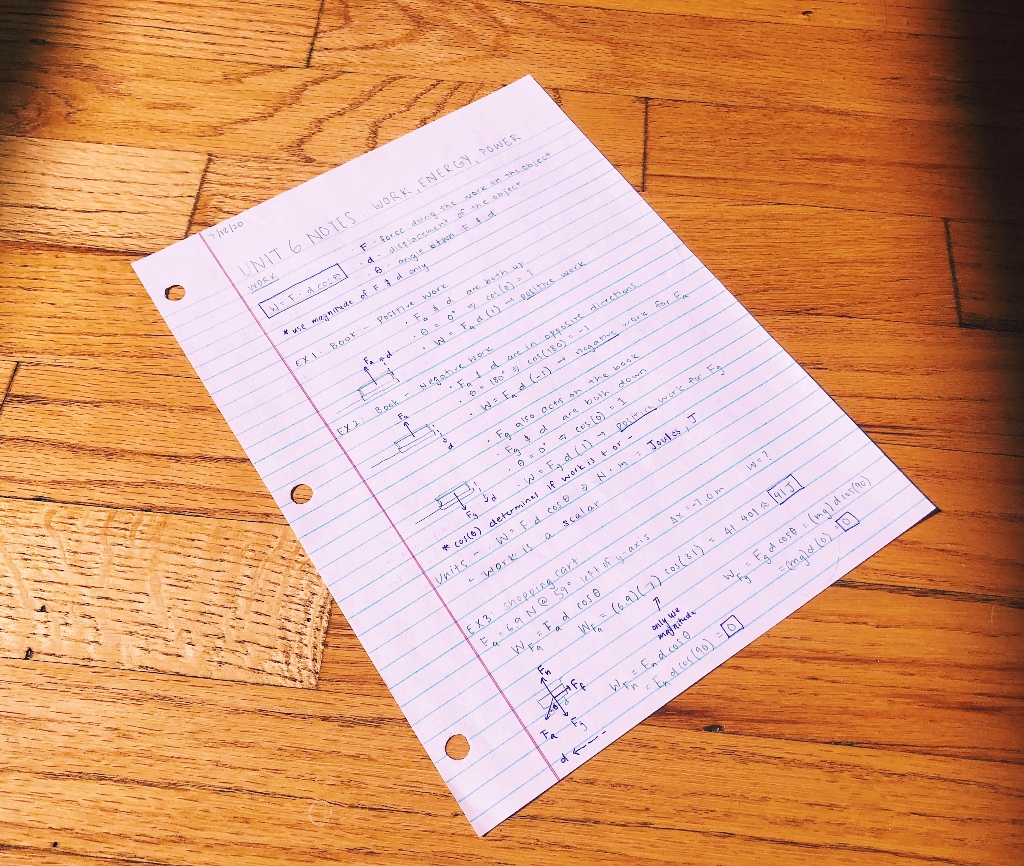 /12/20
UNIT 6 NOTES WORK, ENERGY, POWER
WORK
W = F · d cos θ
· F - force doing the work on the object
· d - displacement of the object
· θ - angle btwn F & d
* use magnitude of F & d only
EX 1: Book - Positive work
Fa d
· Fa & d are both up
· θ = 0° ⇒ cos(0) = 1
· W = Fa d (1) → positive work
EX 2: Book - Negative work
Fa
d
· Fa & d are in opposite directions
· θ = 180° ⇒ cos(180) = -1
· W = Fa d (-1) → negative work for Fa
· Fg also acts on the book
· Fg & d are both down
· θ = 0° ⇒ cos(0) = 1
· W = Fg d (1) → positive work for Fg
Fg d
* cos(θ) determines if work is + or -
Units - W = F d cos θ ⇒ N · m = Joules, J
- work is a scalar
EX3: Shopping cart
Fa = 6.9 N @ 59° left of y-axis Δx = -7.0m W = ?
WFa = Fa d cos θ
WFa = (6.9)(7) cos(31) = 41.401 ≈ 41 J
only use
magnitude
WFg = Fg d cos θ = (mg) d cos(90)
= (mg) d (0) = 0
Fn
Ff
θ
Fa Fg
d
WFn = Fn d cos θ
= Fn d cos (90) = 0